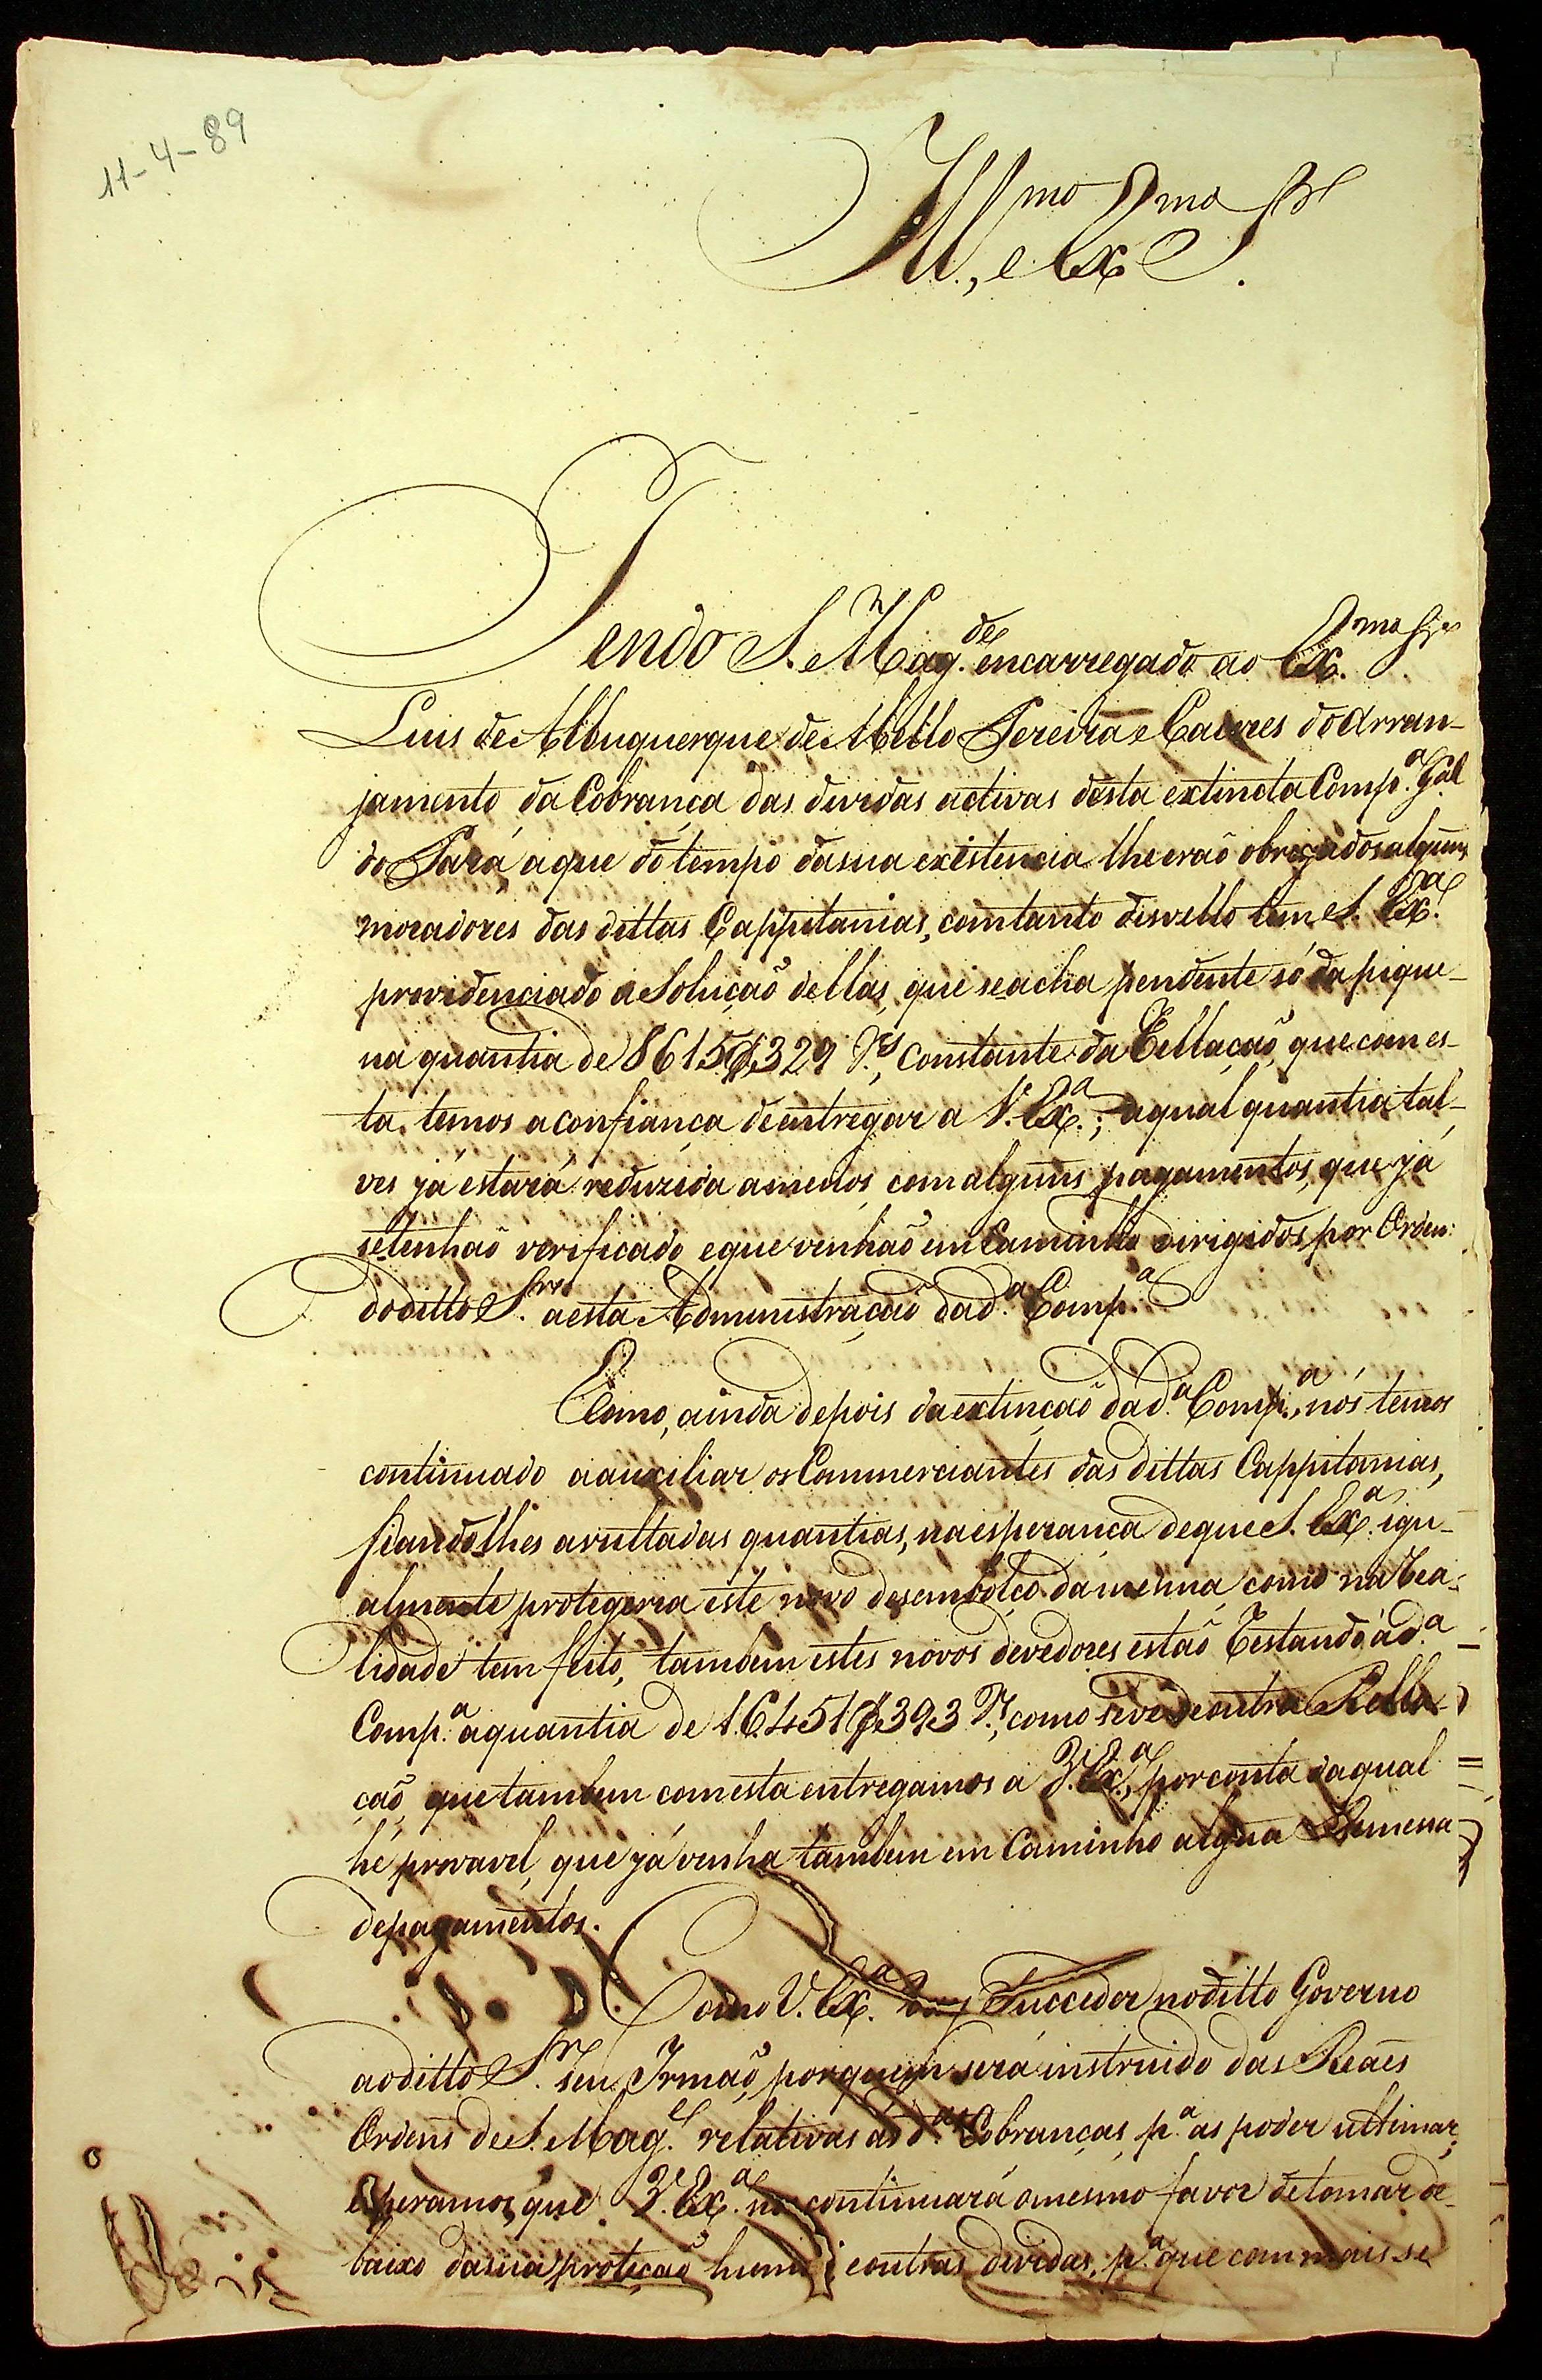 11-4-89
Ill.mo, e Ex.mo Sr.
Tendo S. Mag.de encarregado ao Ex.mo Sr.
Luis de Albuquerque de Mello Pereira e Caceres do Arran-
jamento da Cobrança das dividas activas desta extincta Comp.a G.al
do Pará, a que do tempo da sua existencia lhe eraõ obrigados alguns
moradores das dittas Cappitanias, com tanto disvello tem S. Ex.a
providenciado a Soluçaõ dellas, que se acha pendente só da pique-
na quantia de 8615$329 r.s, constante da Rellaçaõ, que com es-
ta temos a confiança de entregar a V. Ex.a; a qual quantia tal-
ves já estará reduzida a menos, com alguns pagamentos, que já
se tenhaõ verificado e que venhaõ em Caminho dirigidos por Ordem
do ditto Sr. a esta Administraçaõ da d.a Comp.a
Como, ainda depois da extinçaõ da d.a Comp.a, nós temos
continuado a auxiliar os Commerciantes das dittas Cappitanias,
fiandolhes avultadas quantias, na esperança de que S. Ex.a igu-
almente protegeria este novo desembolço da mesma, como na Rea-
lidade tem feito, tambem estes novos devedores estaõ Restando á d.a
Comp.a a quantia de 16451$393 r.s, como se vê de outra Rella-
çaõ, que tambem com esta entregamos a V. Ex.a, por conta da qual
hé provavel, que já venha tambem em Caminho algũa Remessa
de pagamentos.
Como V. Ex.a vay Succeder no ditto Governo
ao ditto Sr. seu Irmaõ, por quem será instruido das Reaes
Ordens de S. Mag.e relativas ás d.as Cobranças, p.a as poder ultimar,
esperamos, que V. Ex.a nos continuará o mesmo favor de tomar de-
baixo da sua proteçaõ humas e outras dividas, p.a que com mais se